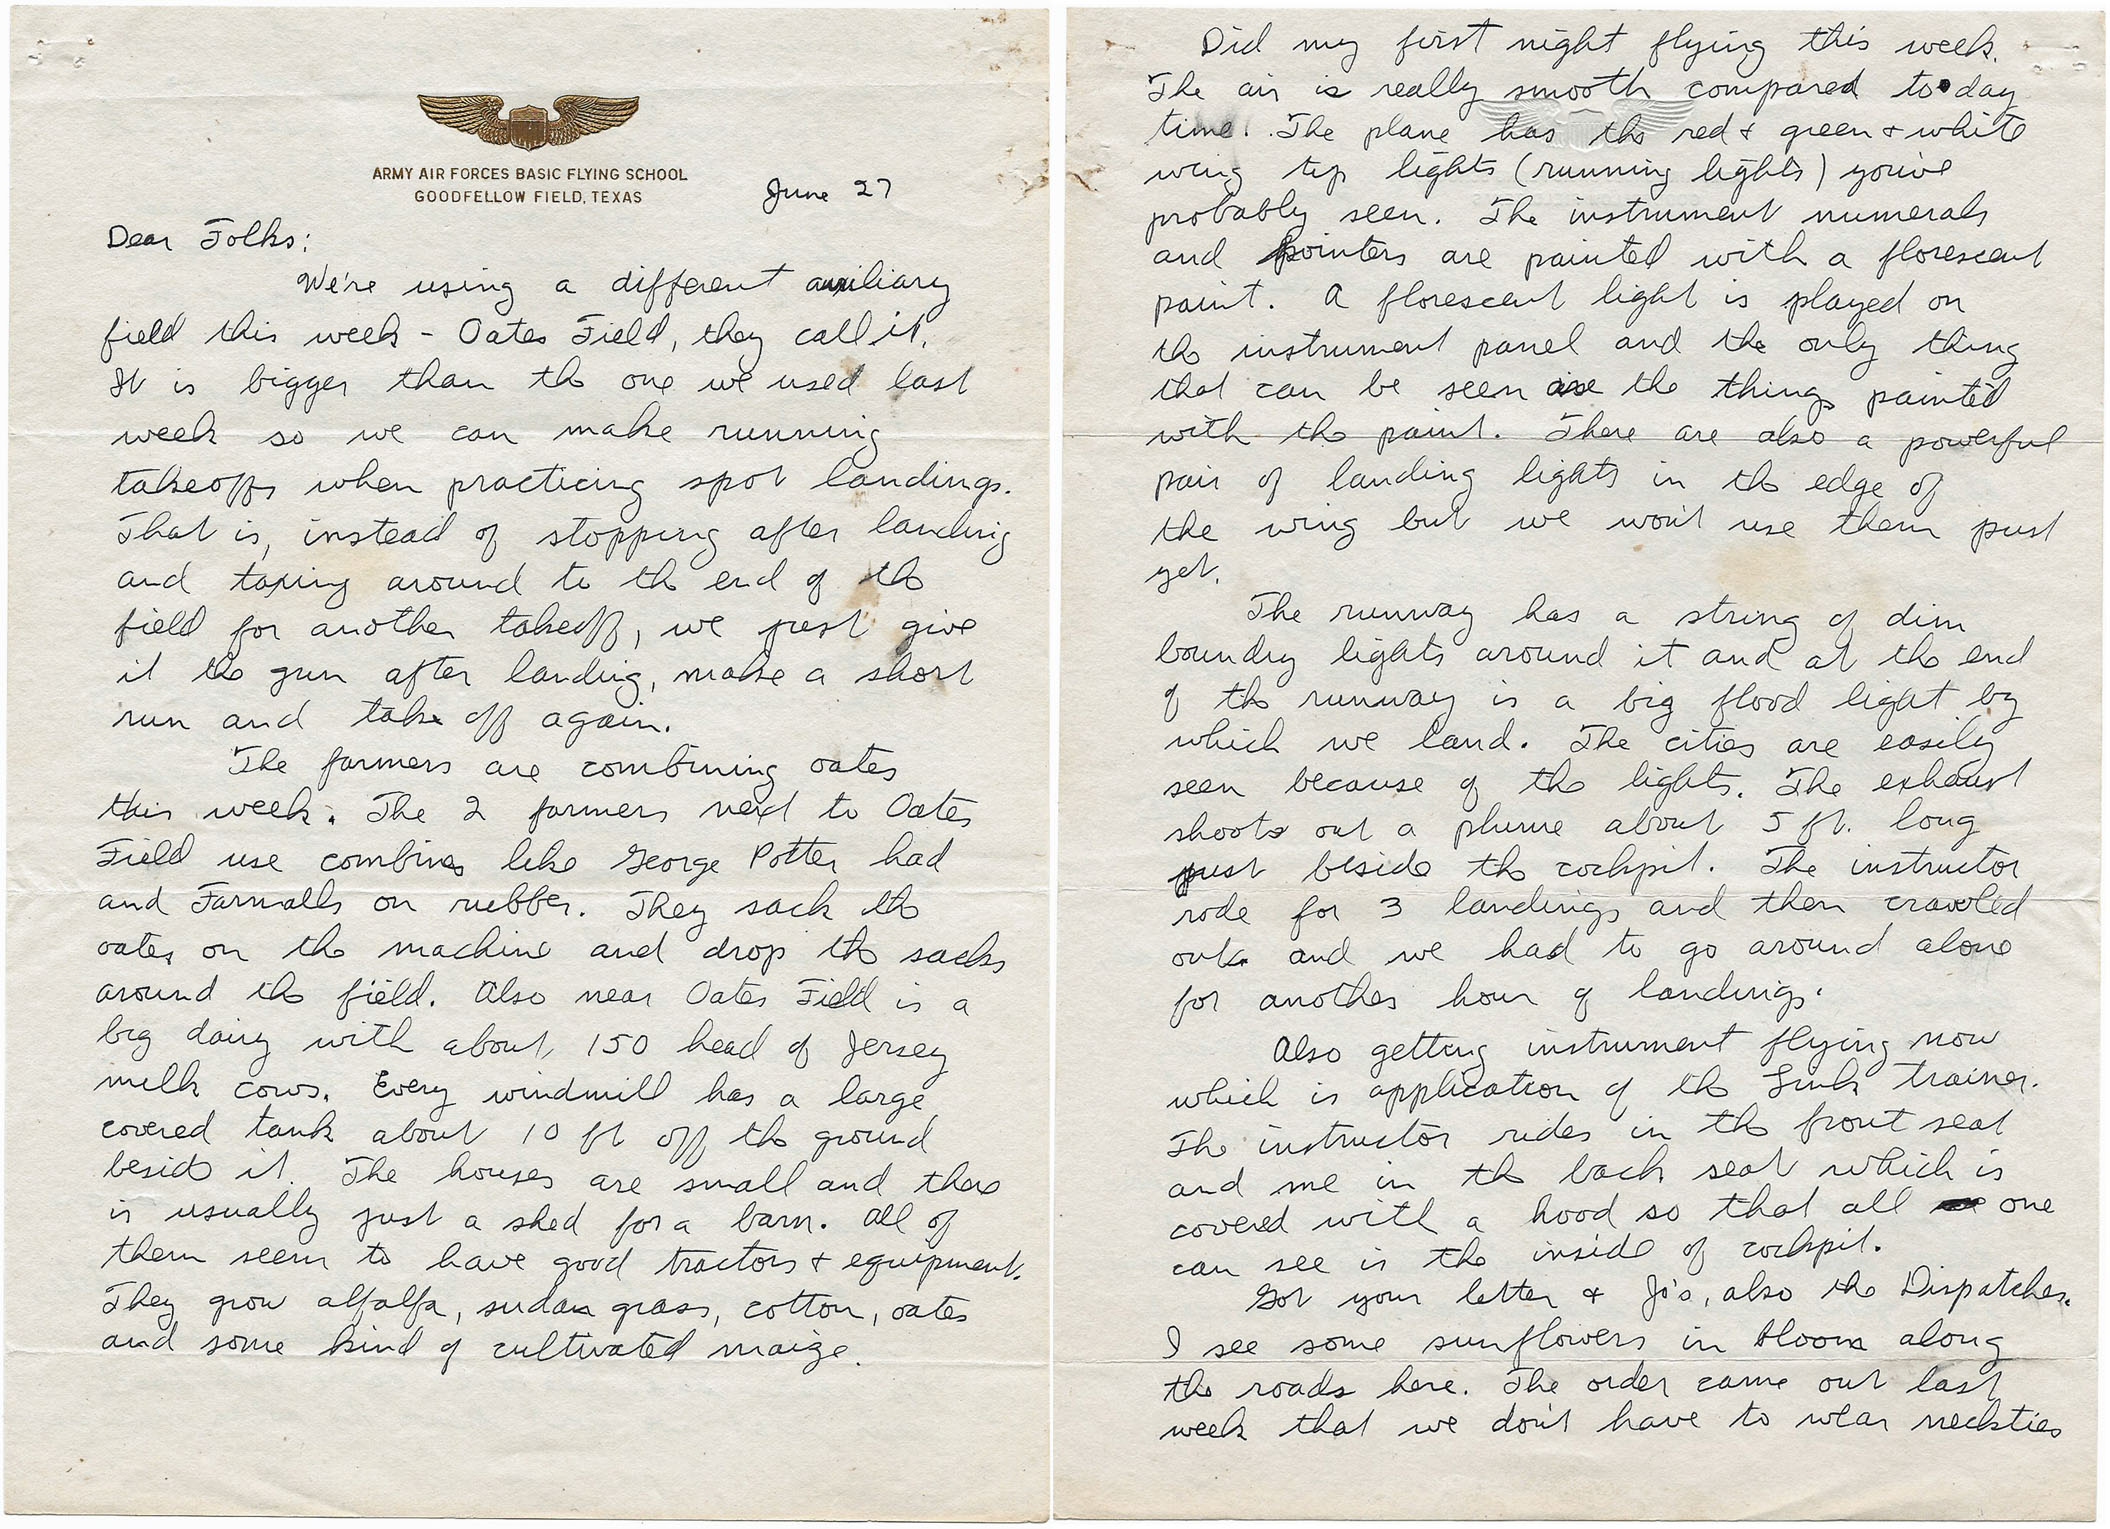 ARMY AIR FORCES BASIC FLYING SCHOOL
GOODFELLOW FIELD, TEXAS
June 27
Dear Folks:
We're using a different auxiliary
field this week – Oates Field, they call it.
It is bigger than the one we used last
week so we can make running
takeoffs when practicing spot landings.
That is, instead of stopping after landing
and taxing around to the end of the
field for another takeoff, we just give
it the gun after landing, make a short
run and take off again.
The farmers are combining oates
this week. The 2 farmers next to Oates
Field use combines like George Potter had
and Farmalls on rubber. They sack the
oates on the machine and drop the sacks
around the field. Also near Oates Field is a
big dairy with about 150 head of Jersey
milk cows. Every windmill has a large
covered tank about 10 ft off the ground
beside it. The houses are small and there
is usually just a shed for a barn. All of
them seem to have good tractors & equipment.
They grow alfalfa, sudan grass, cotton, oates
and some kind of cultivated maize.
Did my first night flying this week.
The air is really smooth compared to day
time. The plane has the red & green & white
wing tip lights (running lights) you've
probably seen. The instrument numerals
and pointers are painted with a florescent
paint. A florescent light is played on
the instrument panel and the only thing
that can be seen are the things painted
with the paint. There are also a powerful
pair of landing lights in the edge of
the wing but we won't use them just
yet.
The runway has a string of dim
boundry lights around it and at the end
of the runway is a big flood light by
which we land. The cities are easily
seen because of the lights. The exhaust
shoots out a plume about 5 ft. long
just beside the cockpit. The instructor
rode for 3 landings and then crawled
out and we had to go around alone
for another hour of landings.
Also getting instrument flying now
which is application of the Link trainer.
The instructor rides in the front seat
and me in the back seat which is
covered with a hood so that all one
can see is the inside of cockpit.
Got your letter & Jo's, also the Dispatches.
I see some sunflowers in bloom along
the roads here. The order came out last
week that we don't have to wear neckties